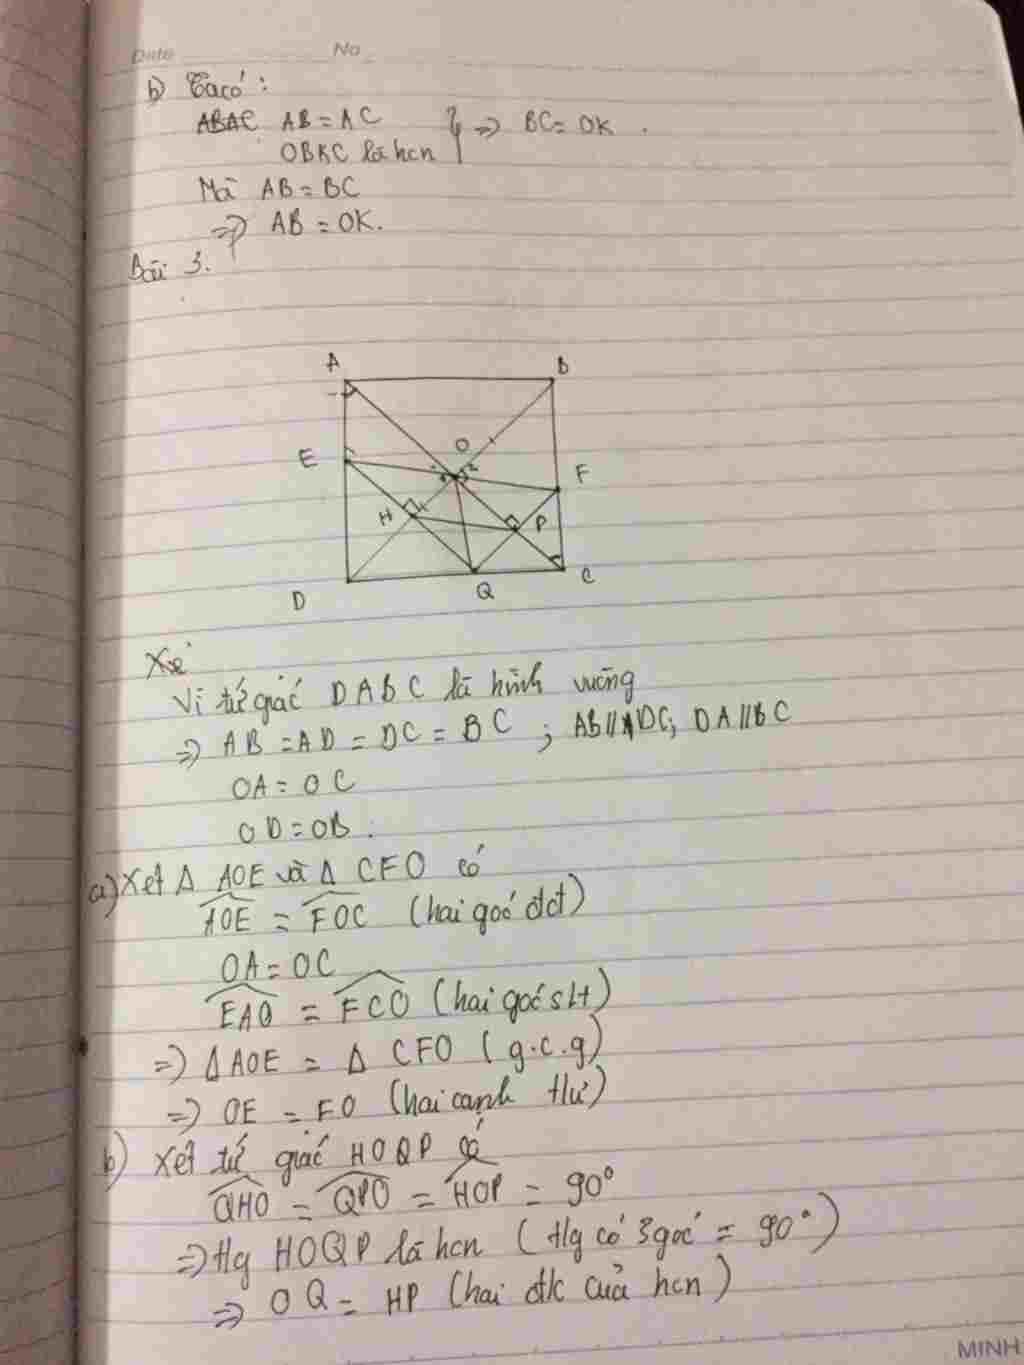 Date No
b) Ta có:
ABAC AB = AC
OBKC là hcn } => BC = OK.
Mà AB = BC
=> AB = OK.
Bài 3.
A B
E O F
H P
D Q C
Xé
Vì tứ giác DABC là hình vuông
=> AB = AD = DC = BC ; AB//DC; DA//BC
OA = OC
OD = OB.
a) Xét Δ AOE và Δ CFO có
AOE = FOC (hai goć đđ)
OA = OC
EAO = FCO (hai goć slt)
=> Δ AOE = Δ CFO (g.c.g)
=> OE = FO (hai cạnh tư)
b) Xét tứ giác HOQP có
QHO = QPO = HOP = 90°
=> tg HOQP là hcn (tg có 3 goć = 90°)
=> OQ = HP (hai đk của hcn)
MINH